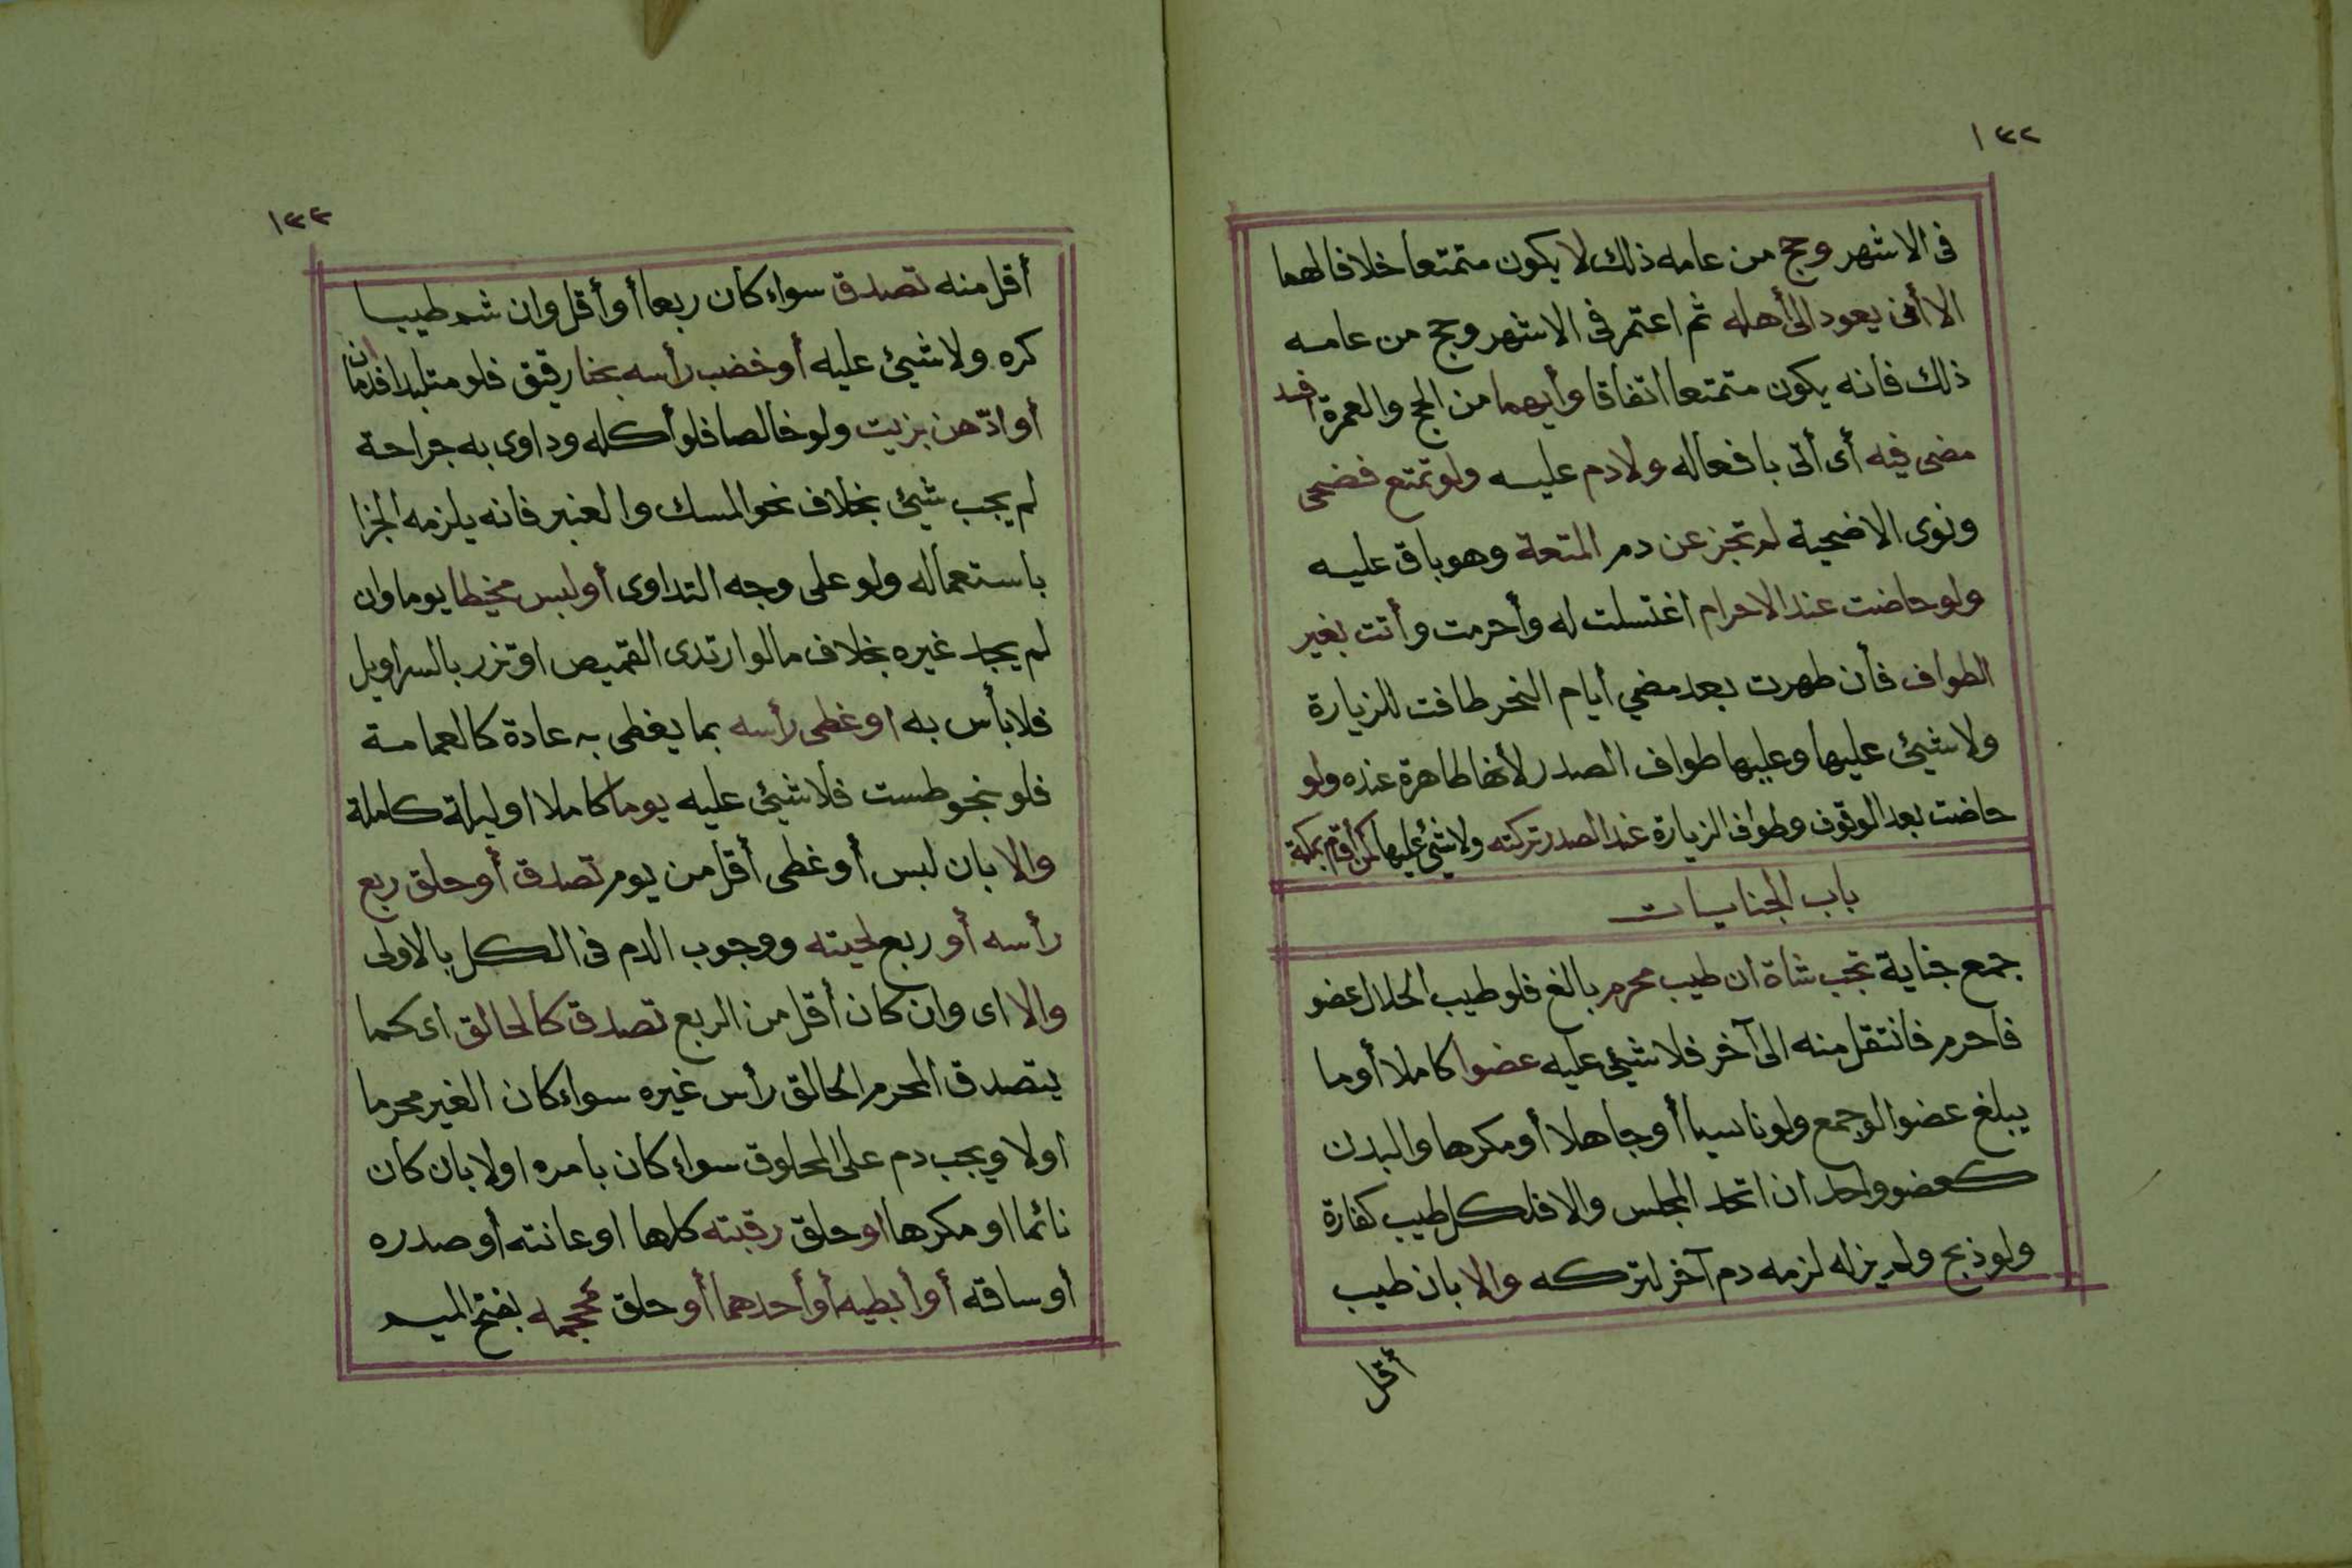 ١٣٢
فى الاشهر وحج من عامه ذلك لا يكون متمتعا خلافا لهما
الا أنى يعود الى أهله ثم اعتمر فى الاشهر وحج من عامه
ذلك فانه يكون متمتعا اتفاقا وأيهما من الحج والعمرة افسد
مضى فيه أى أتى بافعاله ولادم عليه ولو تمتع فضحى
ونوى الاضحية لم تجز عن دم المتعة وهو باق عليه
ولو حاضت عند الاحرام اغتسلت له وأحرمت وأتت بغير
الطواف فأن طهرت بعد مضي أيام النحر طافت للزيارة
ولا شيئ عليها وعليها طواف الصدر لأنها طاهرة عنده ولو
حاضت بعد الوقوف وطواف الزيارة عند الصدر تركته ولا شيئ عليها كمن أقام بمكة
باب الجنايات
جمع جناية تجب شاة ان طيب محرم بالغ فلو طيب الحلال عضو
فاحرم فانتقل منه الى آخر فلا شيئ عليه عضوا كاملا أو ما
يبلغ عضوا لو جمع ولو ناسيا أو جاهلا أو مكرها والبدن
كعضو واحد ان اتحد المجلس والا فلكل طيب كفارة
ولو ذبح ولم يزله لزمه دم آخر لتركه والا بان طيب
أقل
١٣٣
أقل منه تصدق سواء كان ربعا أو أقل وان شم طيبا
كره ولا شيئ عليه أو خضب رأسه بحنا رقيق فلو متلبدا فدمان
أو ادّهن بزيت ولو خالصا فلو أكله وداوى به جراحة
لم يجب شيئ بخلاف نحو المسك والعنبر فانه يلزمه الجزا
باستعماله ولو على وجه التداوى أو لبس مخيطا يوما وان
لم يجد غيره بخلاف ما لو ارتدى القميص او تزر بالسراويل
فلا بأس به او غطى رأسه بما يغطى به عادة كالعمامة
فلو بنحو طست فلا شيئ عليه يوما كاملا او ليلة كاملة
والا بان لبس أو غطى أقل من يوم تصدق أو حلق ربع
رأسه أو ربع لحيته ووجوب الدم فى الكل بالاولى
والا اى وان كان أقل من الربع تصدق كالحالق اى كما
يتصدق المحرم الحالق رأس غيره سواء كان الغير محرما
اولا ويجب دم على المحلوق سواء كان بامره اولا بان كان
نائما او مكرها او حلق رقبته كلها او عانته أو صدره
أو ساقه أو أبطيه أو أحدهما أو حلق محجمه بفتح الميم